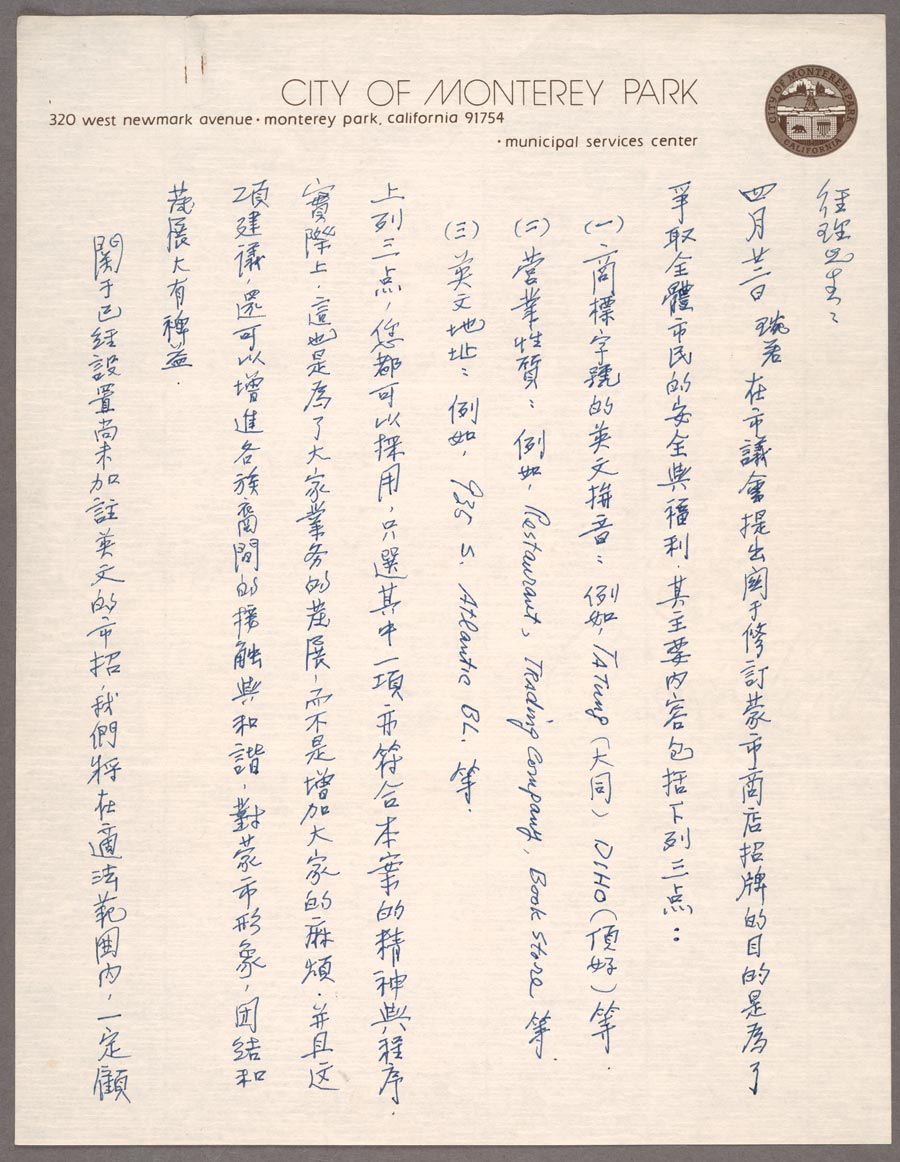 CITY OF MONTEREY PARK
320 west newmark avenue · monterey park, california 91754
· municipal services center
CITY OF MONTEREY PARK
CALIFORNIA
經理先生：
四月廿二日 琬若 在市議會提出関于修訂蒙市商店招牌的目的是為了
爭取全體市民的安全與福利．其主要內容包括下列三点：
(一) 商標，字號的英文拼音：例如，TATUNG (大同) DIHO (頂好) 等．
(二) 營業性質：例如，Restaurant, Trading Company, Book Store 等．
(三) 英文地址：例如，935 S. Atlantic BL. 等．
上列三点，您都可以採用，只選其中一項亦符合本案的精神與程序．
實際上，這也是為了大家業务的發展，而不是增加大家的麻煩．并且这
項建議，還可以增進各族裔間的接触與和諧，對蒙市形象，团結和
發展大有裨益．
関于已經設置尚未加註英文的市招，我們將在適法範囲内，一定顧